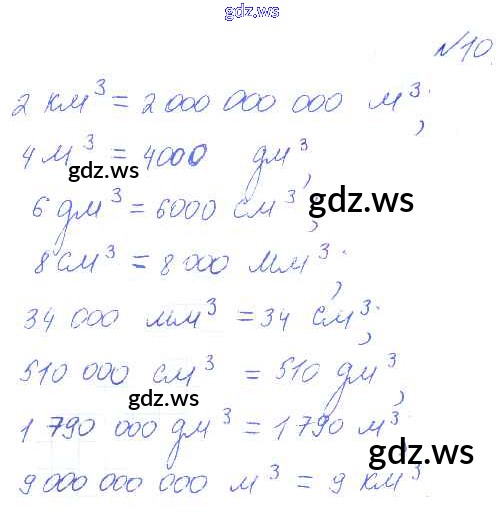 gdz.ws
№10.
2 км³ = 2 000 000 000 м³;
4 м³ = 4000 дм³,
gdz.ws
6 дм³ = 6000 см³;
gdz.ws
8 см³ = 8 000 мм³;
34 000 мм³ = 34 см³;
510 000 см³ = 510 дм³,
gdz.ws
1 790 000 дм³ = 1 790 м³
gdz.ws
9 000 000 000 м³ = 9 км³